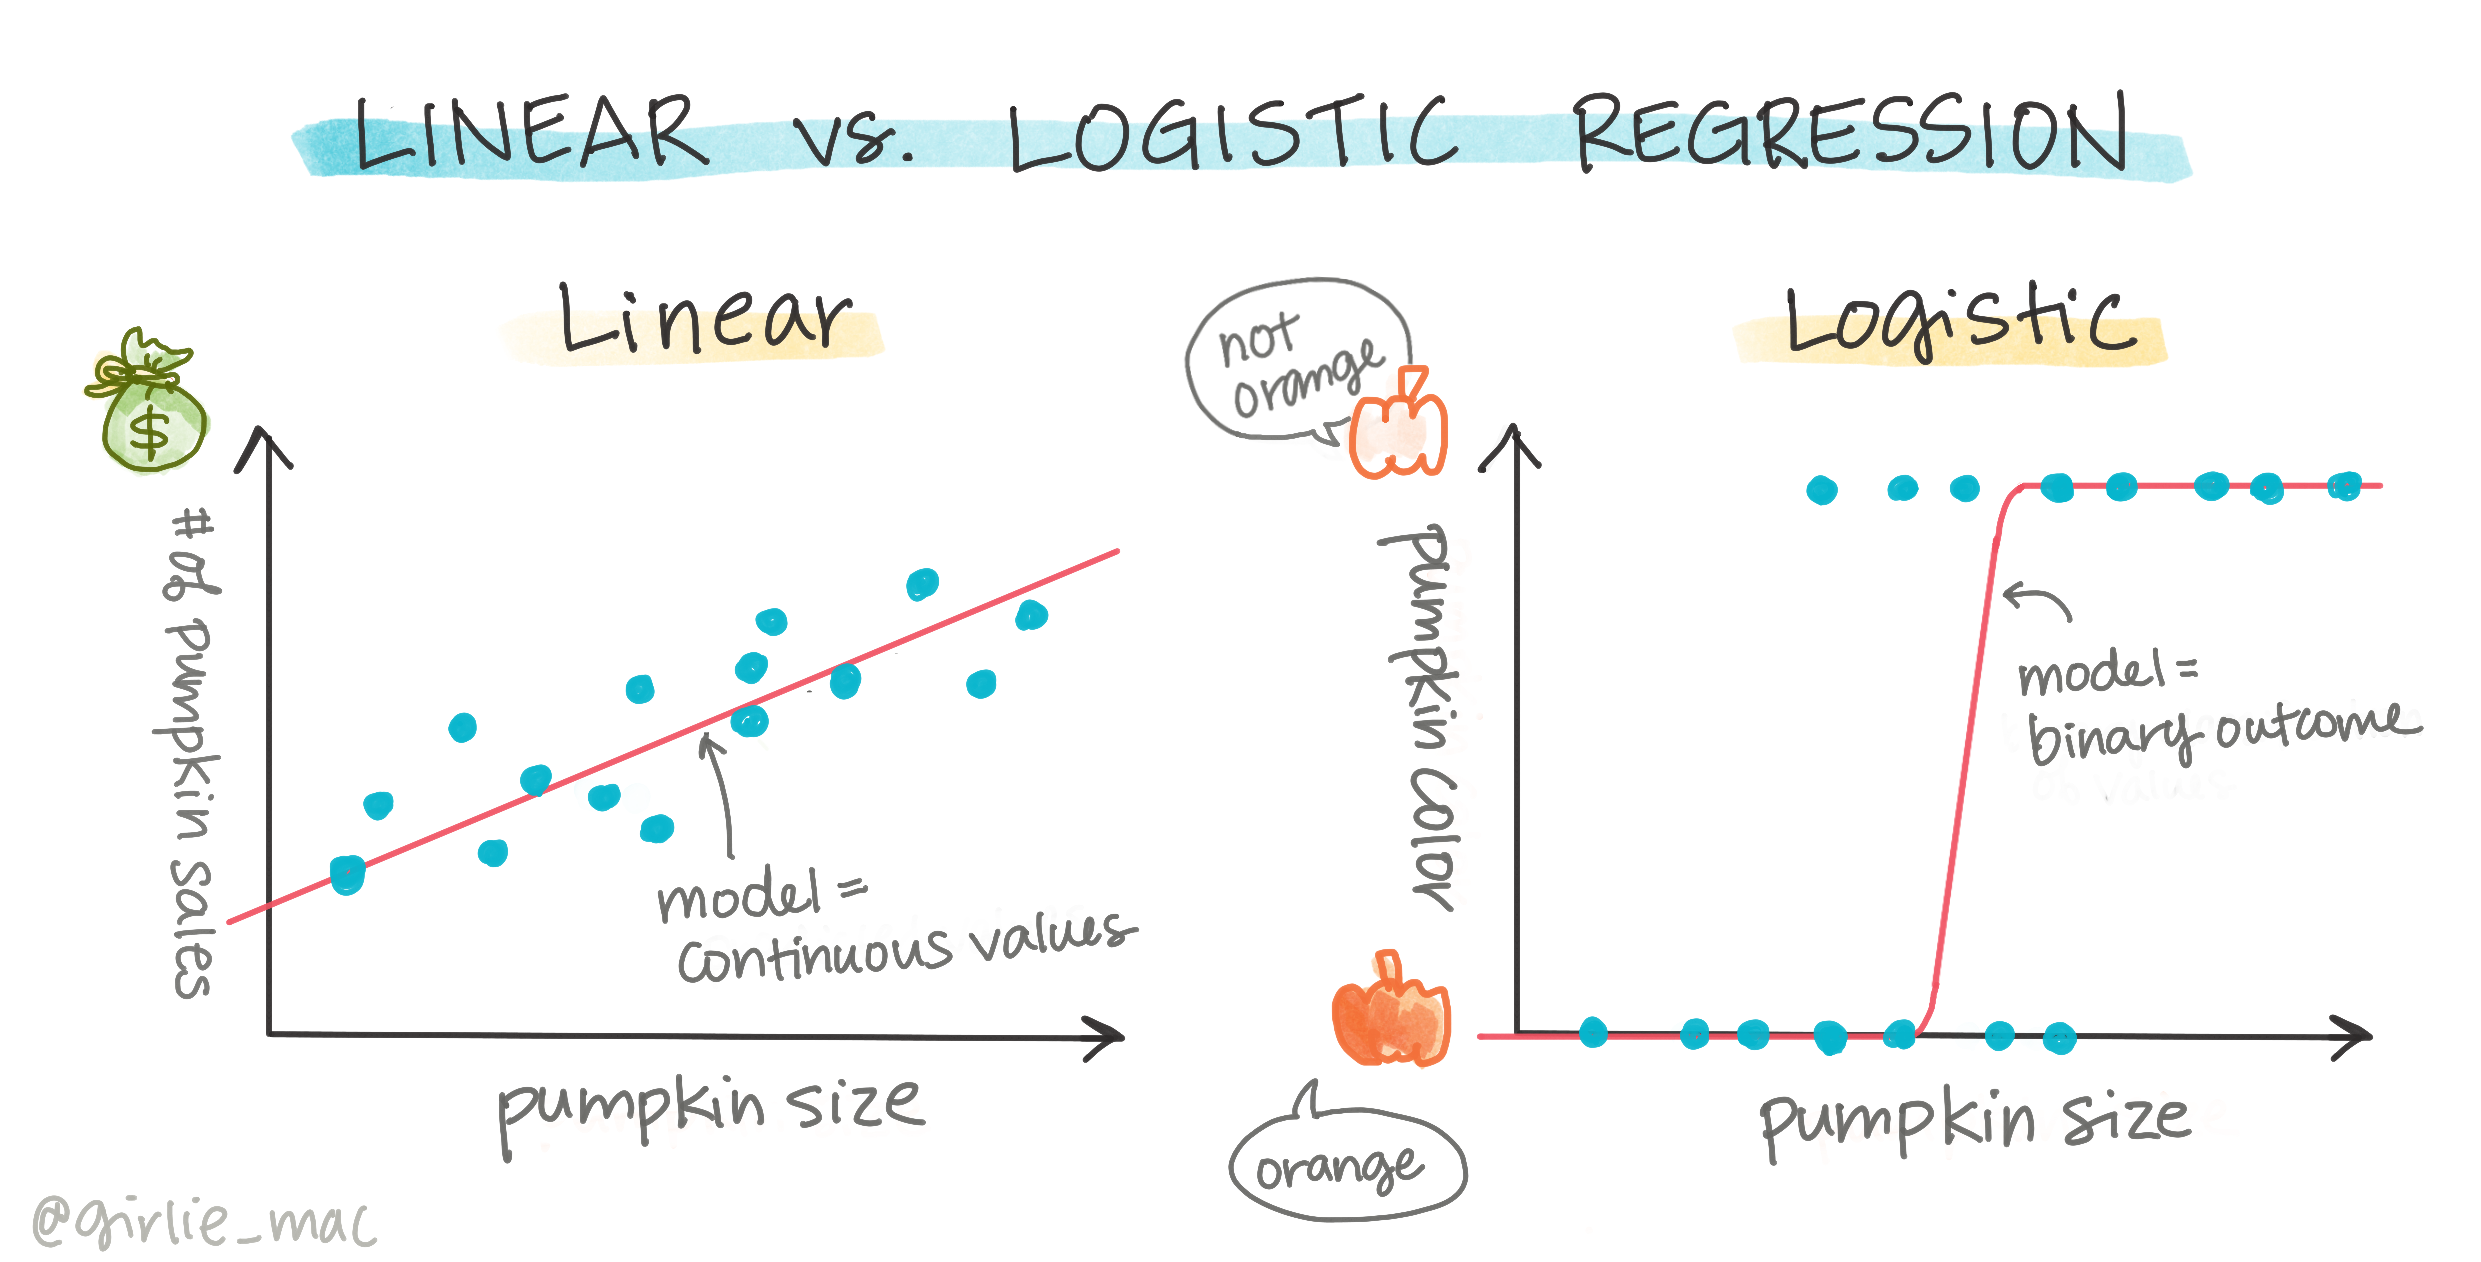 LINEAR vs. LOGISTIC REGRESSION
Linear
$
# of pumpkin sales
model =
continuous values
pumpkin size
Logistic
not
orange
pumpkin color
model =
binary outcome
orange
pumpkin size
@girlie_mac